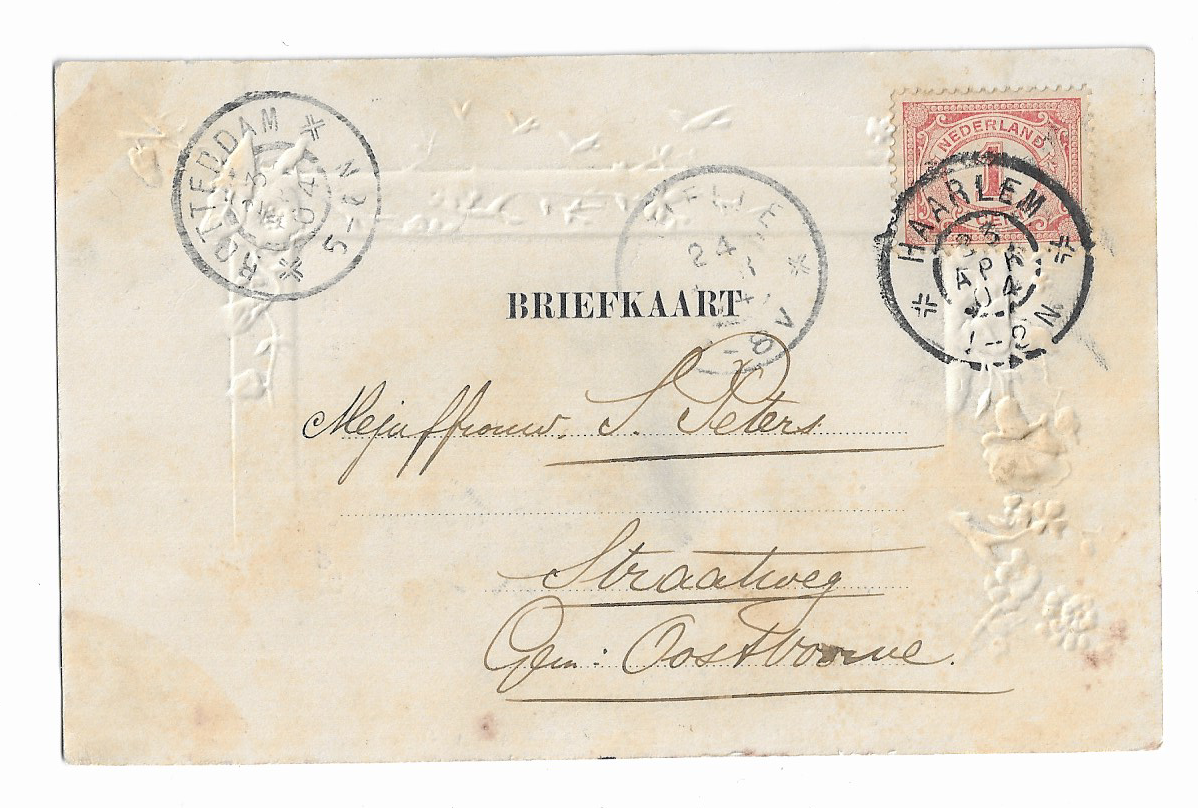 ROTTERDAM
23
04
5-6 N
NEDERLAND
1
CENT
HAARLEM
23
APR
04
1-2 N
24
8 V
BRIEFKAART
Mejuffrouw. S. Peters
Straatweg
Gem: Oostvoorne.